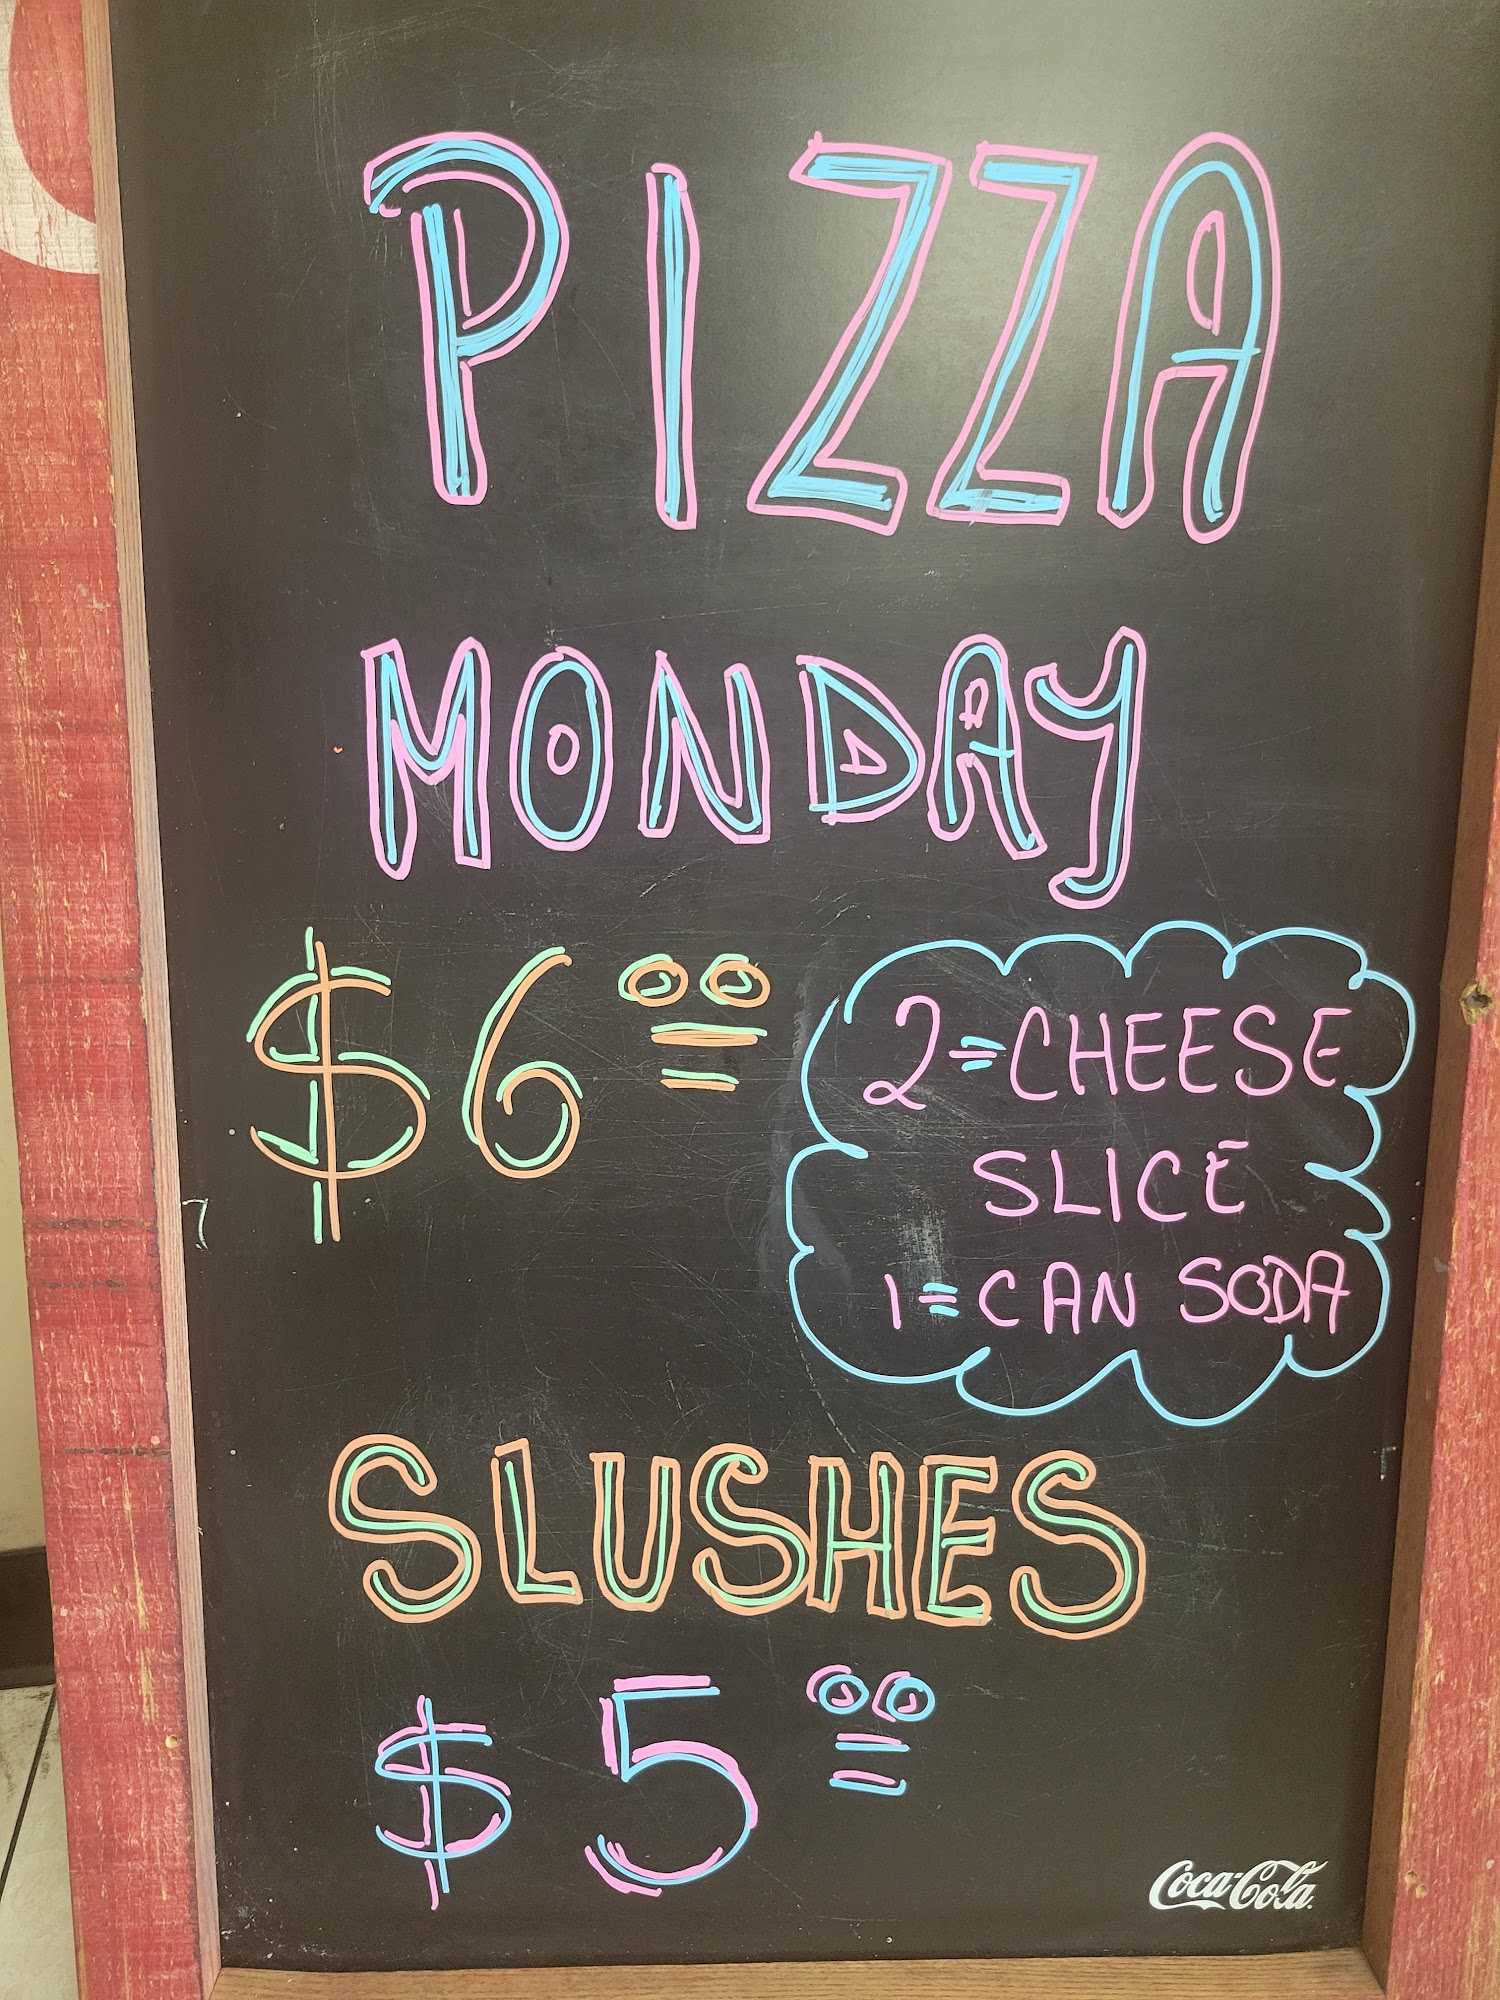 PIZZA
MONDAY
$6.00
2=CHEESE
SLICE
1=CAN SODA
SLUSHES
$5.00
Coca-Cola